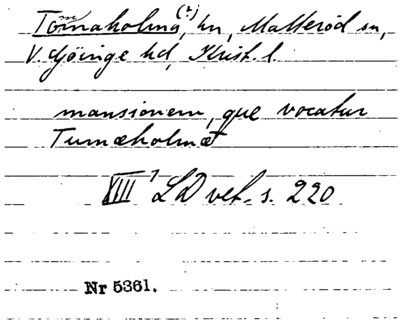 Tommaholma(?), hn, Matteröd sn,
V. Göinge hd, Krist. l.
mansionem, que vocatur
Tumæholmæ
XIII 7 LD vet. s. 220
Nr 5361.